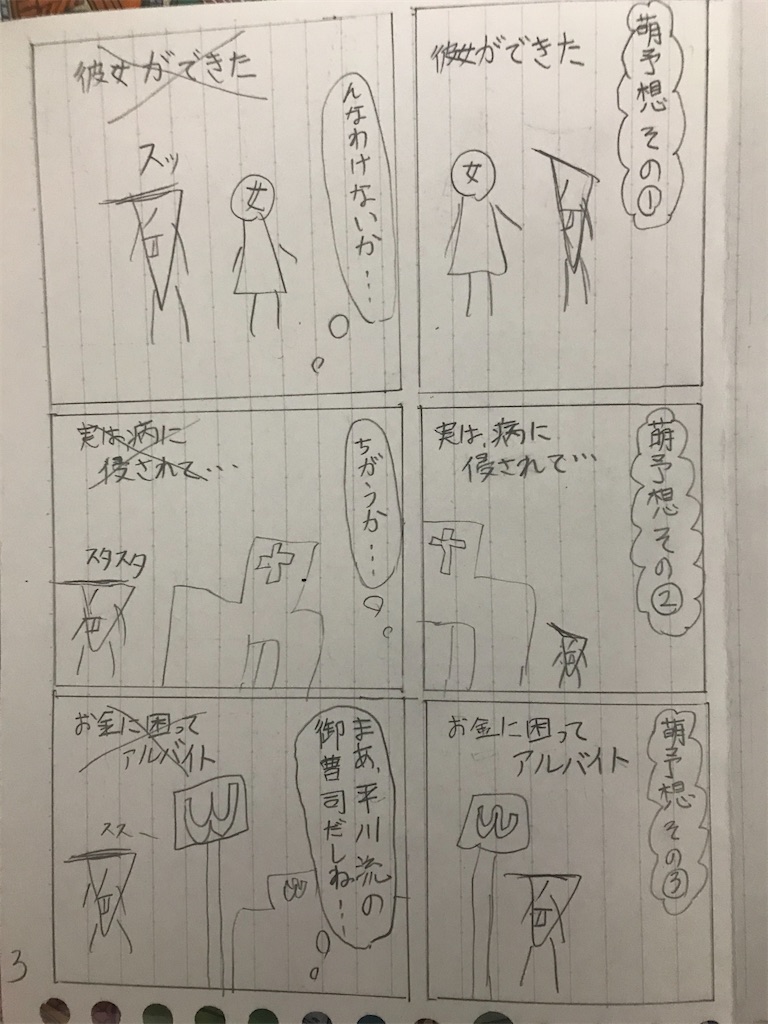 萌予想その①
彼女ができた
女
んなわけないか…
彼女ができた
スッ
女
萌予想その②
実は、病に
侵されて…
ちがうか…
実は、病に
侵されて…
スタスタ
萌予想その③
お金に困って
アルバイト
まあ、平川流の
御曹司だしね…
お金に困って
アルバイト
スス―
3